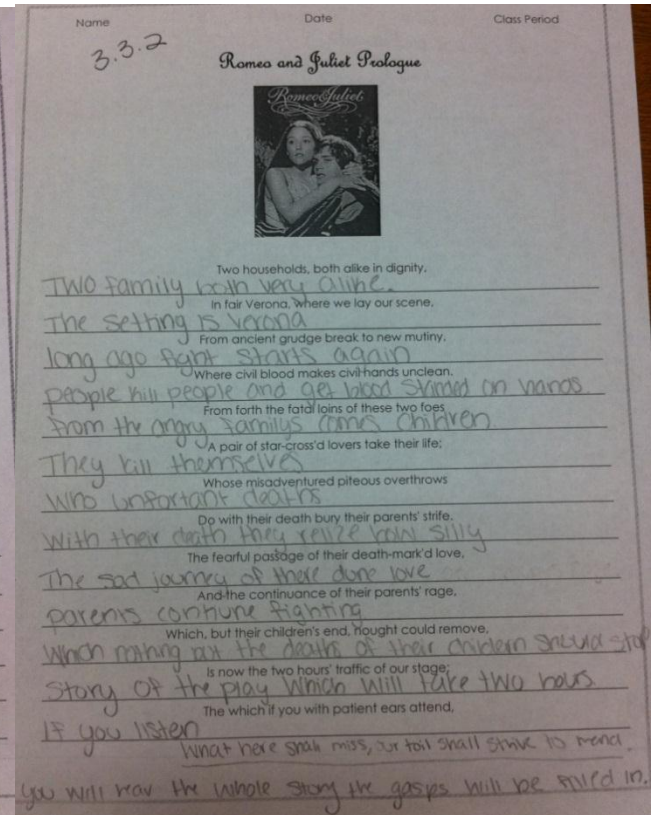 Name Date Class Period
3.3.2
Romeo and Juliet Prologue
Romeo & Juliet
Two households, both alike in dignity,
TWO family both very alike.
In fair Verona, where we lay our scene,
The setting is Verona
From ancient grudge break to new mutiny,
long ago fight starts again
Where civil blood makes civil hands unclean.
people kill people and get blood stained on hands
From forth the fatal loins of these two foes
From the angry familys comes children
A pair of star-cross'd lovers take their life;
They kill themselves
Whose misadventured piteous overthrows
Who unfortant deaths
Do with their death bury their parents' strife.
With their death they relize how silly
The fearful passage of their death-mark'd love,
The sad journey of there done love
And the continuance of their parents' rage,
parents contiune fighting
Which, but their children's end, nought could remove,
Which nothing but the deaths of their childern should stop
Is now the two hours' traffic of our stage;
Story of the play which will take two hours
The which if you with patient ears attend,
If you listen
What here shall miss, our toil shall strive to mend.
you will hear the whole story the gasps will be filled in.